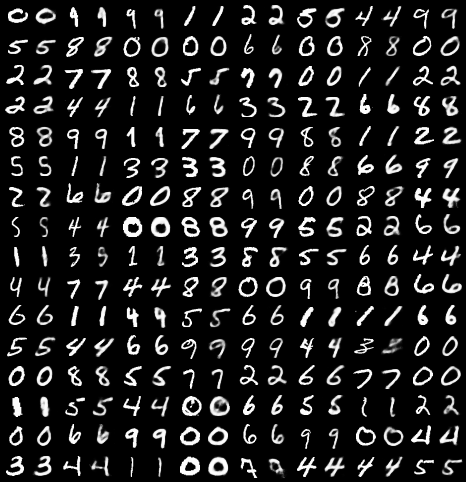 0 0 9 9 9 9 1 1 2 2 5 5 4 4 9 9
5 5 8 8 0 0 0 0 6 6 0 0 8 8 0 0
2 2 7 7 8 8 5 5 7 7 0 0 1 1 2 2
2 2 4 4 1 1 6 6 3 3 2 2 6 6 8 8
8 8 9 9 1 1 7 7 9 9 8 8 1 1 2 2
5 5 1 1 3 3 3 3 0 0 8 8 6 6 9 9
2 2 6 6 0 0 8 8 9 9 0 0 8 8 4 4
5 5 4 4 0 0 8 8 9 9 5 5 2 2 6 6
1 1 3 5 1 1 3 3 8 8 5 5 6 6 4 4
4 4 7 7 4 4 8 8 0 0 9 9 8 8 6 6
6 6 1 1 4 9 5 5 6 6 1 1 1 1 6 6
5 5 4 4 6 6 9 9 9 9 4 4 3 3 0 0
0 0 8 8 5 5 7 7 2 2 6 6 7 7 0 0
1 1 5 5 4 4 0 0 6 6 5 5 1 1 2 2
0 0 6 6 9 9 0 0 6 6 9 9 0 0 4 4
3 3 4 4 1 1 0 0 7 4 4 4 4 5 5